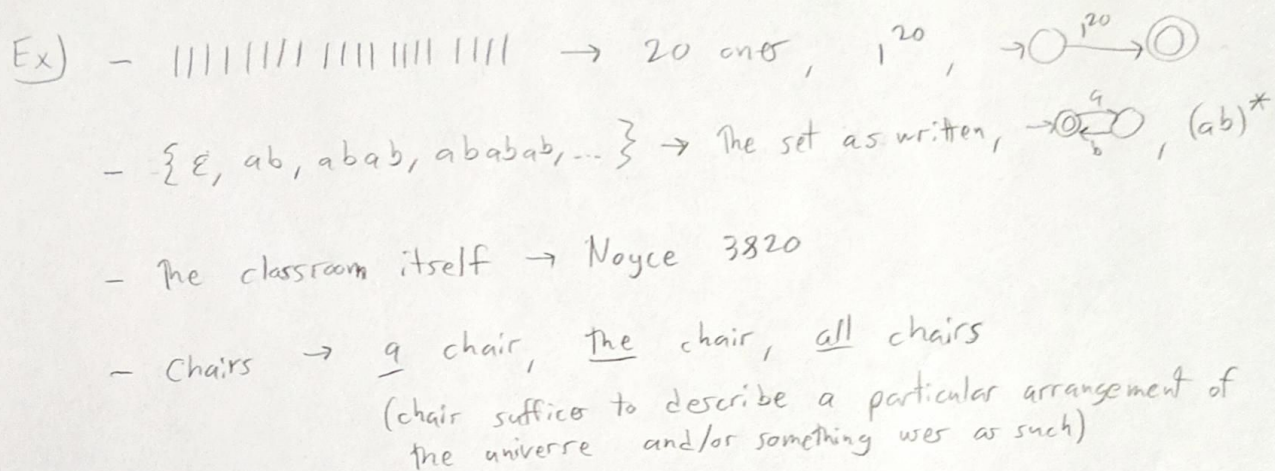 Ex) - |||||||| |||| |||| |||| → 20 ones, 1^20, → 1^20
- {ε, ab, abab, ababab, ... } → The set as written, → a b, (ab)*
- The classroom itself → Noyce 3820
- Chairs → a chair, the chair, all chairs
(chair suffices to describe a particular arrangement of
the universe and/or something uses as such)